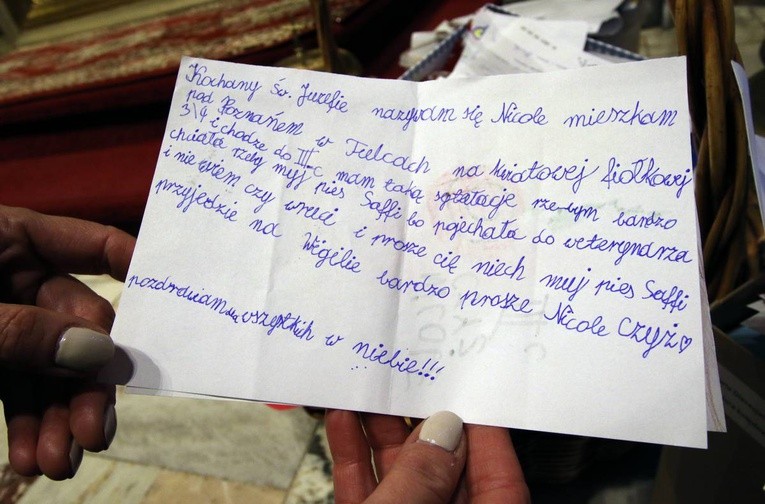 Kochany Św. Juzefie nazywam się Nicole mieszkam
pod Poznaniem w Fulcach na kwiatowej fiołkowej
3\4 i chodze do III c mam taką sytłacje rze bym bardzo
chciała rzeby muj pies Saffi bo pojechała do weterynarza
i nie wiem czy wruci i prosze cię niech muj pies Saffi
przyjedzie na Wigilie bardzo prosze Nicole Czyż♡
pozdrawiam wszystkich w niebie!!!